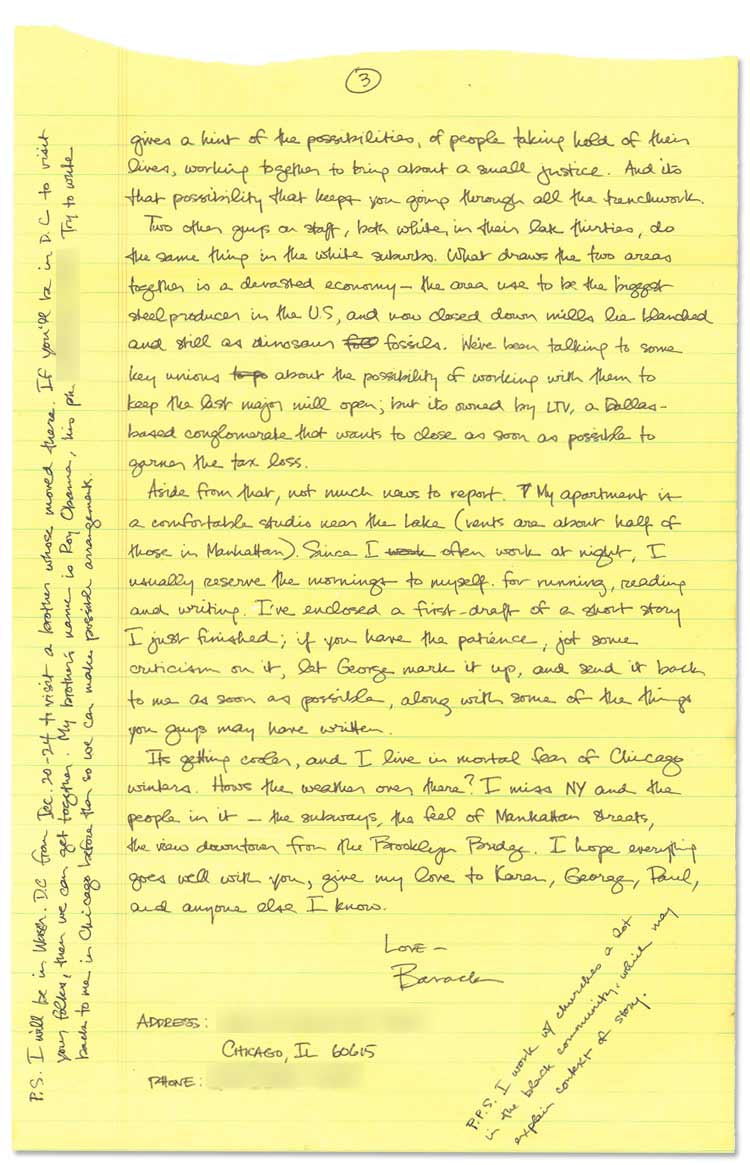 3
gives a hint of the possibilities, of people taking hold of their
lives, working together to bring about a small justice. And its
that possibility that keeps you going through all the trenchwork.
Two other guys on staff, both white, in their late thirties, do
the same thing in the white suburbs. What draws the two areas
together is a devasted economy — the area use to be the biggest
steel producer in the U.S, and now closed down mills lie blanched
and still as dinosaur fossils. We've been talking to some
key unions about the possibility of working with them to
keep the last major mill open; but its owned by LTV, a Dallas-
based conglomerate that wants to close as soon as possible to
garner the tax loss.
Aside from that, not much news to report. My apartment is
a comfortable studio near the Lake (rents are about half of
those in Manhattan). Since I work often work at night, I
usually reserve the mornings to myself. for running, reading
and writing. I've enclosed a first-draft of a short story
I just finished; if you have the patience, jot some
criticism on it, let George mark it up, and send it back
to me as soon as possible, along with some of the things
you guys may have written.
Its getting cooler, and I live in mortal fear of Chicago
winters. Hows the weather over there? I miss NY and the
people in it — the subways, the feel of Manhattan streets,
the view downtown from the Brooklyn Bridge. I hope everything
goes well with you, give my love to Karen, George, Paul,
and anyone else I know.
LOVE —
Barack
ADDRESS:
CHICAGO, IL 60615
PHONE:
P.P.S. I work w/ churches a lot
in the black community, which may
explain context of story.
P.S. I will be in Wash. D.C from Dec. 20-24 to visit a brother whose moved there. If you'll be in D.C to visit
your folks, then we can get together. My brother's name is Roy Obama, his ph Try to write
back to me in Chicago before then so we can make possible arrangement.